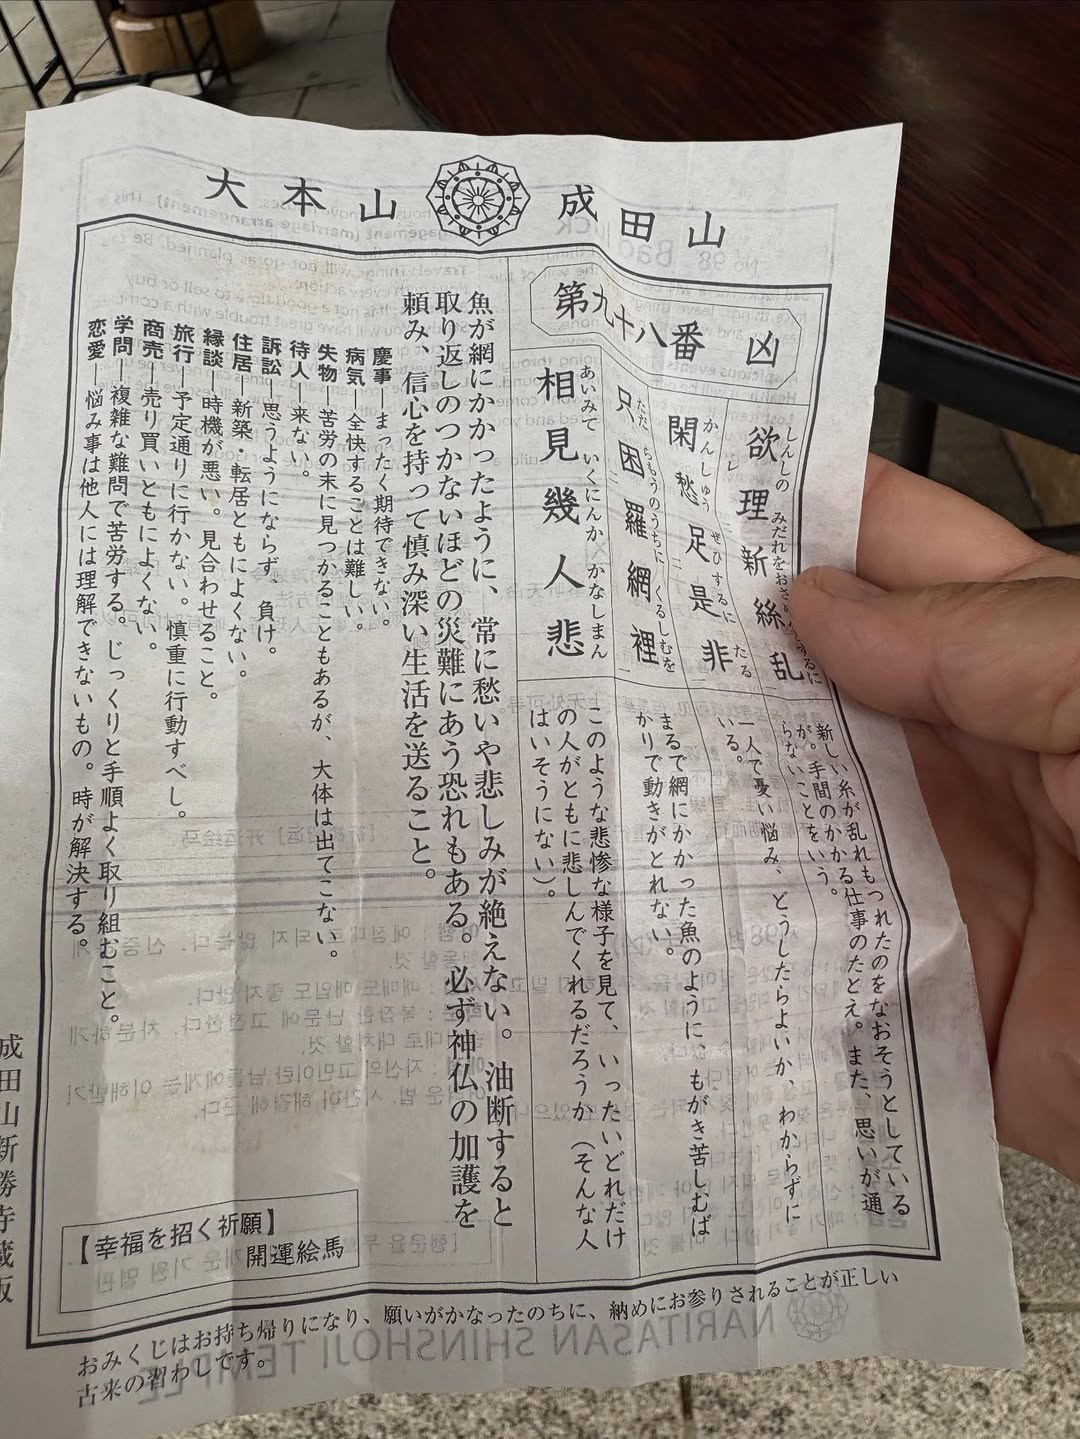 大本山 成田山
第九十八番 凶
欲理新絲乱
しんしの みだれをおさ
するに
新しい糸が乱れもつれたのをなおそうとしている
が。手間のかかる仕事のたとえ。また、思いが通
らないことをいう。
閑愁足是非
かんしゅう ぜひするに たる
レ 二 一
一人で憂い悩み、どうしたらよいか、わからずに
いる。
只困羅網裡
ただ らもうのうちに くるしむを
二 一
まるで網にかかった魚のように、もがき苦しむば
かりで動きがとれない。
相見幾人悲
あいみて いくにんか かなしまん
このような悲惨な様子を見て、いったいどれだけ
の人がともに悲しんでくれるだろうか(そんな人
はいそうにない)。
魚が網にかかったように、常に愁いや悲しみが絶えない。油断すると
取り返しのつかないほどの災難にあう恐れもある。必ず神仏の加護を
頼み、信心を持って慎み深い生活を送ること。
慶事―まったく期待できない。
病気―全快することは難しい。
失物―苦労の末に見つかることもあるが、大体は出てこない。
待人―来ない。
訴訟―思うようにならず、負け。
住居―新築・転居ともによくない。
縁談―時機が悪い。見合わせること。
旅行―予定通りに行かない。慎重に行動すべし。
商売―売り買いともによくない。
学問―複雑な難問で苦労する。じっくりと手順よく取り組むこと。
恋愛―悩み事は他人には理解できないもの。時が解決する。
【幸福を招く祈願】
開運絵馬
おみくじはお持ち帰りになり、願いがかなったのちに、納めにお参りされることが正しい
古来の習わしです。
成田山新勝寺蔵版
NARITASAN SHINSHOJI TEMPLE